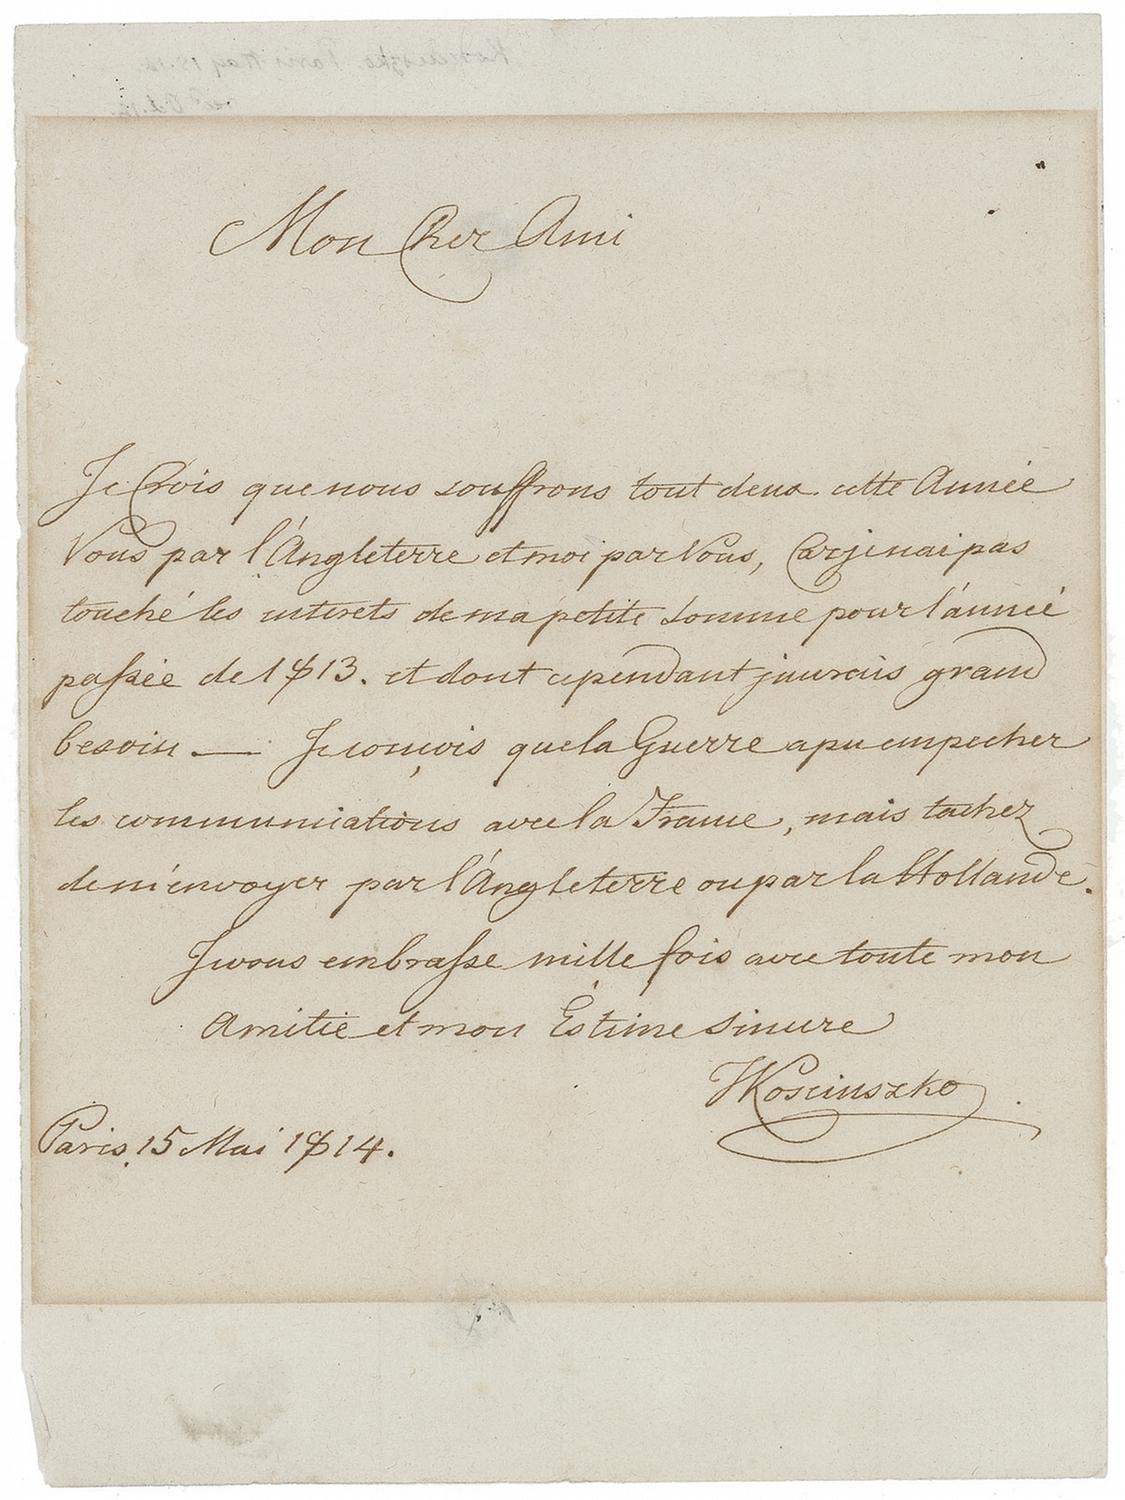 Mon Cher Ami
Je Crois que nous souffrons tout deux cette Année
Vous par l'Angleterre et moi par Vous, Car je n'ai pas
touché les interets de ma petite somme pour l'année
passée de 1813. et dont cependant j'aurais grand
besoin — Je conçois que la Guerre a pu empecher
les communications avec la France, mais tachez
de m'envoyer par l'Angleterre ou par la Hollande.
Je vous embrasse mille fois avec toute mon
Amitié et mon Estime sincere
TKosciuszko
Paris, 15 Mai 1814.